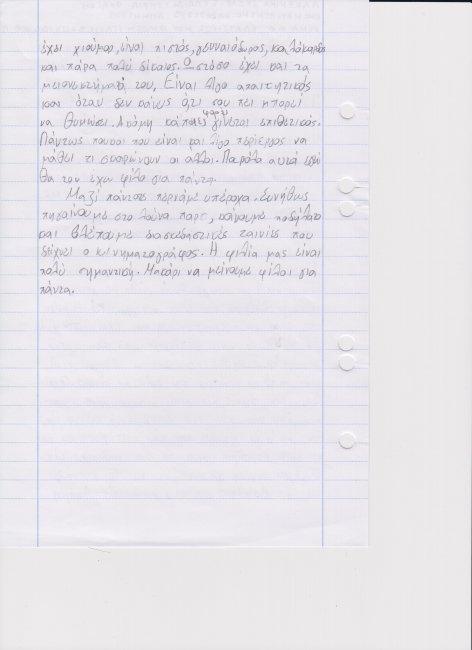 έχει χιούμορ, είναι πιστός, γενναιόδωρος, καλόκαρδος
και πάρα πολύ δίκαιος. Ωστόσο έχει και τα
μειονεκτήματά του. Είναι λίγο απαιτητικός
και όταν δεν κάνεις ότι σου πει μπορεί
να θυμώσει. Ακόμη κάποιες φορές γίνεται επιθετικός.
Πάντως είναι και λίγο περίεργος να
μάθει τι σκαρώνουν οι άλλοι. Παρόλα αυτά εγώ
θα τον έχω φίλο για πάντα.
Μαζί πάντοτε περνάμε υπέροχα. Συνήθως
πηγαίνουμε στο λούνα παρκ, κάνουμε ποδήλατο
και βλέπουμε διασκεδαστικές ταινίες που
δείχνει ο κινηματογράφος. Η φιλία μας είναι
πολύ σημαντική. Μακάρι να μείνουμε φίλοι για
πάντα.